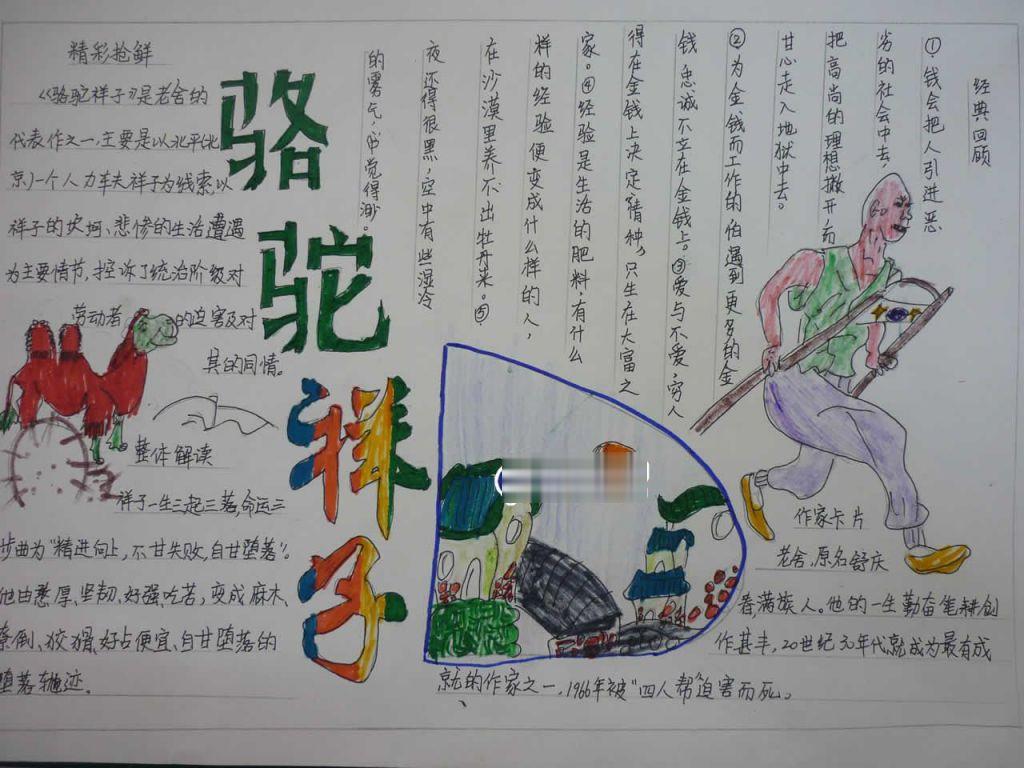 骆驼祥子
精彩抢鲜
《骆驼祥子》是老舍的
代表作之一,主要是以北平(北
京)一个人力车夫祥子为线索,以
祥子的坎坷、悲惨的生活遭遇
为主要情节,控诉了统治阶级对
劳动者的迫害及对
其的同情。
整体解读
祥子一生三起三落,命运三
步曲为“精进向上,不甘失败,自甘堕落”。
他由憨厚、坚韧、好强、吃苦,变成麻木、
潦倒、狡猾、好占便宜、自甘堕落的
堕落轨迹。
经典回顾
①钱会把人引进恶
劣的社会中去,
把高尚的理想撇开,而
甘心走入地狱中去。
②为金钱而工作的,怕遇到更多的金
钱,忠诚不立在金钱上。③爱与不爱,穷人
得在金钱上决定,情种,只生在大富之
家。④经验是生活的肥料,有什么
样的经验便变成什么样的人,
在沙漠里养不出牡丹来。⑤
夜还得很黑,空中有些湿冷
的雾气,心中觉得渺。
作家卡片
老舍,原名舒庆
春,满族人。他的一生勤奋笔耕,创
作甚丰,20世纪30年代,就成为最有成
就的作家之一,1966年被“四人帮”迫害而死。